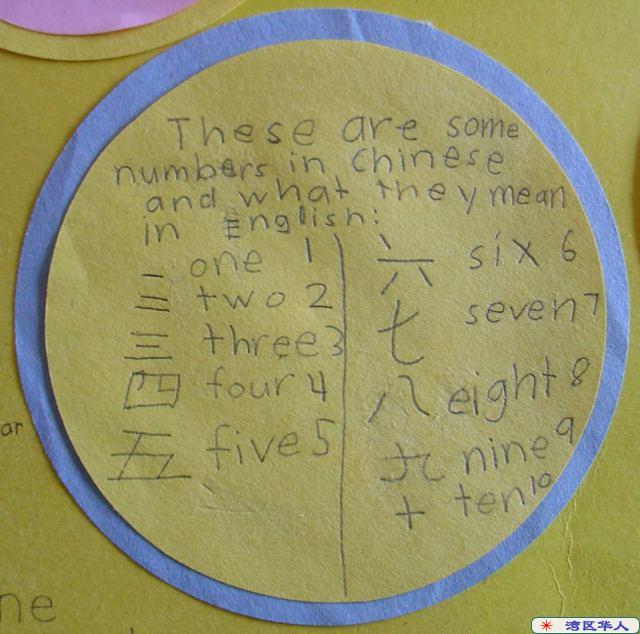 These are some
numbers in Chinese
and what they mean
in English:
一 one 1
二 two 2
三 three 3
四 four 4
五 five 5
六 six 6
七 seven 7
八 eight 8
九 nine 9
十 ten 10
ar
ne
湾区华人